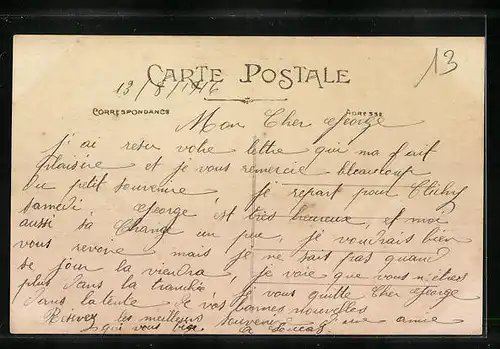 13
CARTE POSTALE
13/8/1916
CORRESPONDANCE
ADRESSE
Mon Cher George
j'ai reser votre lettre qui ma fait
plaisire et je vous remercie beaucoup
Du petit souvenire je repart pour Clichy
samedi. George est tres heureux, et moi
aussi sa Change un peu, je voudrais bien
vous revoire mais je ne sait pas quand
se jour la viendra, je vaie que vous n'etes
plus Dans la tranché je vous quitte Cher George
Dans la tente De vos bonnes nouvelles
Resevez les meilleurs souvenir D'une amie
qui vous